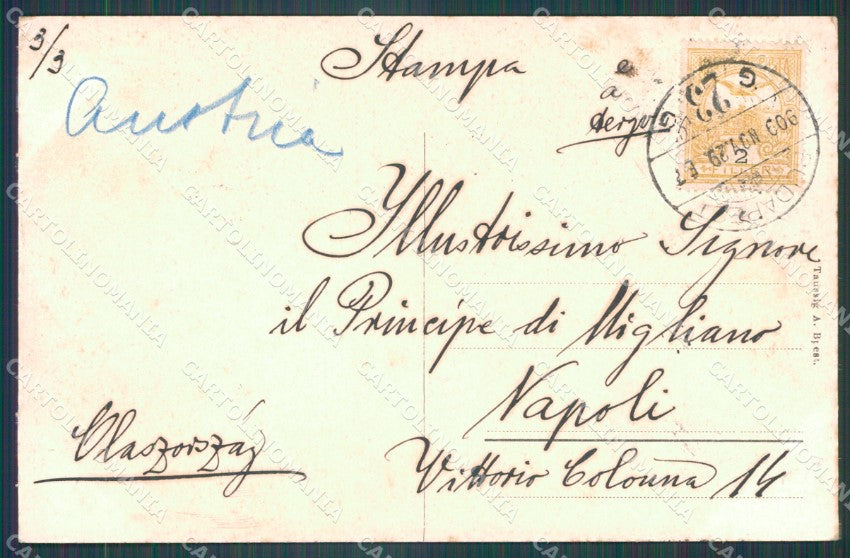 3/3
Stampa
Austria
Illustrissimo Signore
il Principe di Migliano
Napoli
Vittorio Colonna 14
Olaszország
Taussig A. Bpest.
CARTOLINOMANIA